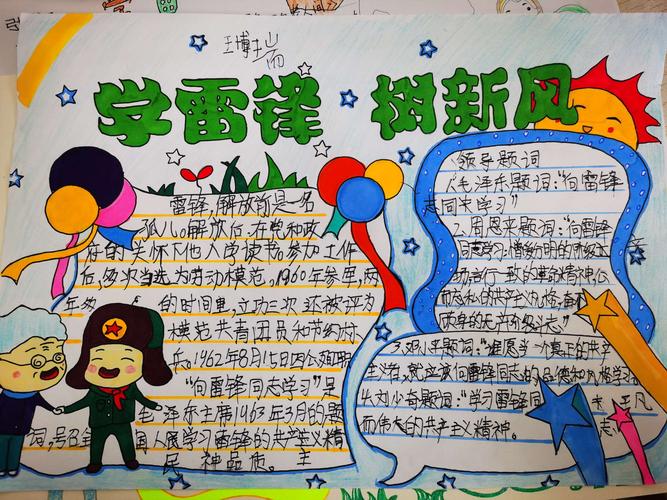 王博瑞
学雷锋 树新风
雷锋,解放前是一名
孤儿。解放后,在党和政
府的关怀下他入学读书。参加工作
后,多次当选为劳动模范。1960年参军,两
年多的时间里,立功三次还被评为
模范共青团员和节约标
兵。1962年8月15日因公殉职
"向雷锋同志学习"是
毛泽东主席1963年3月的题
词,号召全国人民学习雷锋的共产主义精
神品质。
领导题词
1.毛泽东题词:"向雷锋
同志学习"
2.周恩来题词:"向雷锋
同志学习:憎爱分明的阶级立
场,言行一致的革命精神,公
而忘私的共产主义风格,奋不
顾身的无产阶级斗志。"
3.邓小平题词:"谁愿当一个真正的共产
主义者,就应该向雷锋同志的品德和风格学习。
4.刘少奇题词:"学习雷锋同志平凡
而伟大的共产主义精神。